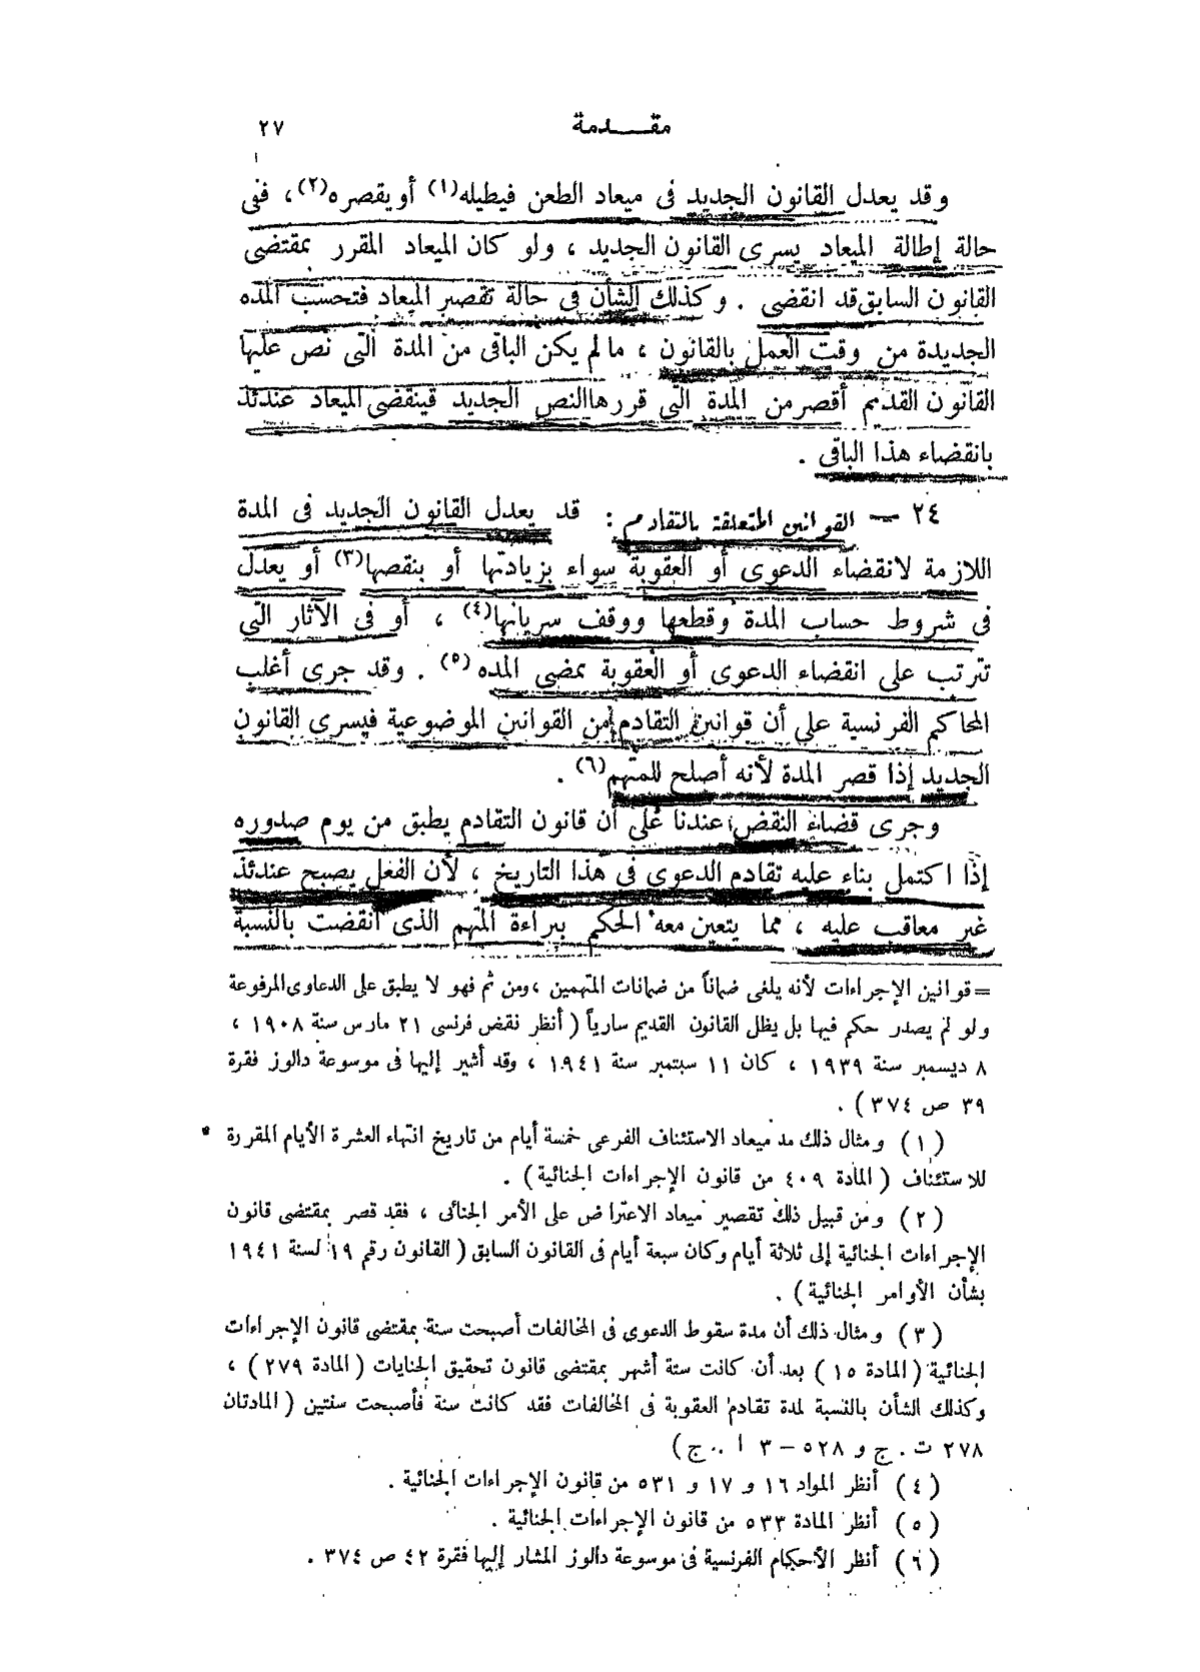 مقدمة ٢٧
وقد يعدل القانون الجديد فى ميعاد الطعن فيطيله(١) أو يقصره(٢)، ففى
حالة إطالة الميعاد يسرى القانون الجديد ، ولو كان الميعاد المقرر بمقتضى
القانون السابق قد انقضى . وكذلك الشأن فى حالة تقصير الميعاد فتحسب المده
الجديدة من وقت العمل بالقانون ، مالم يكن الباقى من المدة التى نص عليها
القانون القديم أقصر من المدة التى قررها النص الجديد فينقضى الميعاد عندئذ
بانقضاء هذا الباقى .
٢٤ — القوانين المتعلقة بالتقادم : قد يعدل القانون الجديد فى المدة
اللازمة لانقضاء الدعوى أو العقوبة سواء بزيادتها أو بنقصها(٣) أو يعدل
فى شروط حساب المدة وقطعها ووقف سريانها(٤) ، أو فى الآثار التى
تترتب على انقضاء الدعوى أو العقوبة بمضى المده(٥) . وقد جرى أغلب
المحاكم الفرنسية على أن قوانين التقادم من القوانين الموضوعية فيسرى القانون
الجديد إذا قصر المدة لأنه أصلح للمتهم(٦) .
وجرى قضاء النقض عندنا على أن قانون التقادم يطبق من يوم صدوره
إذا اكتمل بناء عليه تقادم الدعوى فى هذا التاريخ ، لأن الفعل يصبح عندئذ
غير معاقب عليه ، مما يتعين معه الحكم ببراءة المتهم الذى انقضت بالنسبة
= قوانين الإجراءات لأنه يلغى ضماناً من ضمانات المتهمين ، ومن ثم فهو لا يطبق على الدعاوى المرفوعة
ولو لم يصدر حكم فيها بل يظل القانون القديم سارياً ( أنظر نقض فرنسى ٢١ مارس سنة ١٩٠٨ ،
٨ ديسمبر سنة ١٩٣٩ ، كان ١١ سبتمبر سنة ١٩٤١ ، وقد أشير إليها فى موسوعة دالوز فقرة
٣٩ ص ٣٧٤ ) .
( ١ ) ومثال ذلك مد ميعاد الاستئناف الفرعى خمسة أيام من تاريخ انتهاء العشرة الأيام المقررة
للاستئناف ( المادة ٤٠٩ من قانون الإجراءات الجنائية ) .
( ٢ ) ومن قبيل ذلك تقصير ميعاد الاعتراض على الأمر الجنائى ، فقد قصر بمقتضى قانون
الإجراءات الجنائية إلى ثلاثة أيام وكان سبعة أيام فى القانون السابق ( القانون رقم ١٩ لسنة ١٩٤١
بشأن الأوامر الجنائية ) .
( ٣ ) ومثال ذلك أن مدة سقوط الدعوى فى المخالفات أصبحت سنة بمقتضى قانون الإجراءات
الجنائية ( المادة ١٥ ) بعد أن كانت ستة أشهر بمقتضى قانون تحقيق الجنايات ( المادة ٢٧٩ ) ،
وكذلك الشأن بالنسبة لمدة تقادم العقوبة فى المخالفات فقد كانت سنة فأصبحت سنتين ( المادتان
٢٧٨ ت . ج و ٥٢٨ – ٣ ا . ج )
( ٤ ) أنظر المواد ١٦ و ١٧ و ٥٣١ من قانون الإجراءات الجنائية .
( ٥ ) أنظر المادة ٥٣٣ من قانون الإجراءات الجنائية .
( ٦ ) أنظر الأحكام الفرنسية فى موسوعة دالوز المشار إليها فقرة ٤٢ ص ٣٧٤ .